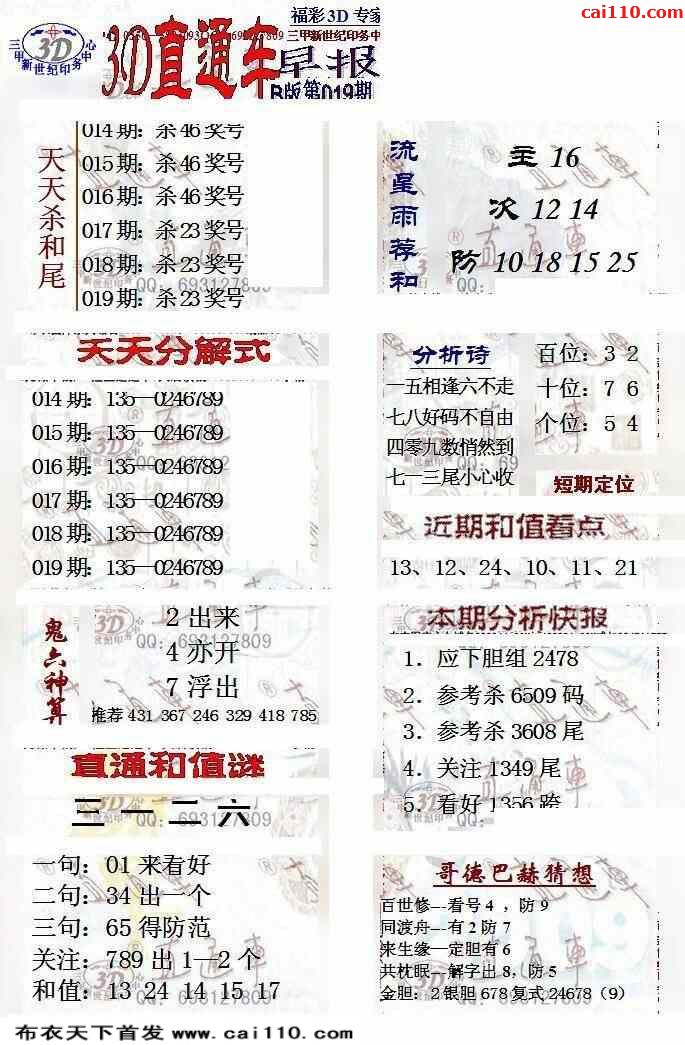 cai110.com
福彩3D 专家
三甲新世纪印务中心
3D
3D直通车
早报
B版第019期
天天杀和尾
014期：杀46奖号
015期：杀46奖号
016期：杀46奖号
017期：杀23奖号
018期：杀23奖号
019期：杀23奖号
流星雨荐和
主 16
次 12 14
防 10 18 15 25
天天分解式
014期：135—0246789
015期：135—0246789
016期：135—0246789
017期：135—0246789
018期：135—0246789
019期：135—0246789
分析诗
一五相逢六不走
七八好码不自由
四零九数悄然到
七一三尾小心收
百位：3 2
十位：7 6
个位：5 4
短期定位
近期和值看点
13、12、24、10、11、21
鬼六神算
2 出来
4 亦开
7 浮出
推荐 431 367 246 329 418 785
本期分析快报
1．应下胆组 2478
2．参考杀 6509 码
3．参考杀 3608 尾
4．关注 1349 尾
5．看好 1356 跨
直通和值谜
三 一 二 六
一句：01 来看好
二句：34 出一个
三句：65 得防范
关注：789 出 1—2 个
和值：13 24 14 15 17
哥德巴赫猜想
百世修---看号 4 ，防 9
同渡舟---有 2 防 7
来生缘---定胆有 6
共枕眠---解字出 8，防 5
金胆：2 银胆 678 复式 24678（9）
QQ：693127809
布衣天下首发 www.cai110.com